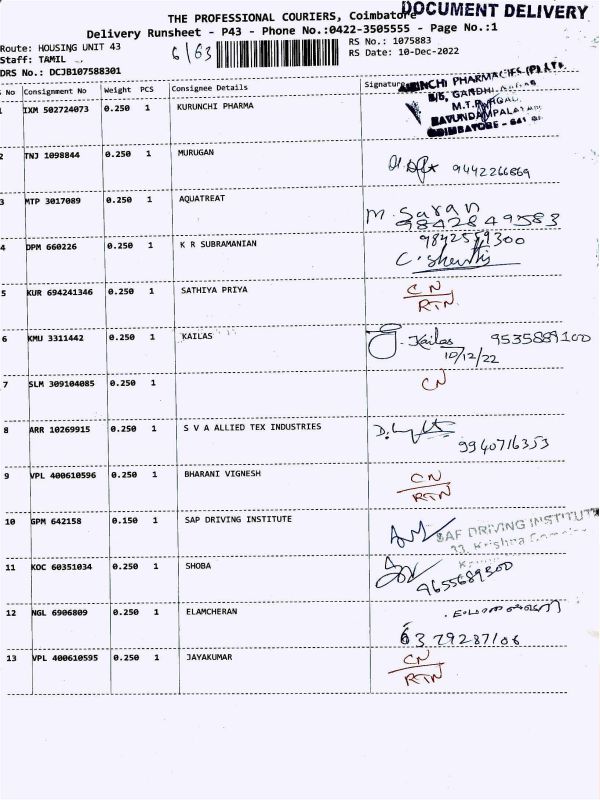 THE PROFESSIONAL COURIERS, Coimbatore
DOCUMENT DELIVERY
Delivery Runsheet - P43 - Phone No.:0422-3505555 - Page No.:1
Route: HOUSING UNIT 43
Staff: TAMIL
DRS No.: DCJB107588301
6/63
RS No.: 1075883
RS Date: 10-Dec-2022
S No Consignment No Weight PCS Consignee Details Signature
1 IXM 502724073 0.250 1 KURUNCHI PHARMA
M.T.P. ROAD,
COIMBATORE - 641
2 TNJ 1098844 0.250 1 MURUGAN 9442266869
3 MTP 3017089 0.250 1 AQUATREAT M. Saran
9842849583
4 DPM 660226 0.250 1 K R SUBRAMANIAN 9842559300
5 KUR 694241346 0.250 1 SATHIYA PRIYA CN
RTN
6 KMU 3311442 0.250 1 KAILAS Kailas 9535889100
10/12/22
7 SLM 309104085 0.250 1 CN
8 ARR 10269915 0.250 1 S V A ALLIED TEX INDUSTRIES
9940716353
9 VPL 400610596 0.250 1 BHARANI VIGNESH CN
RTN
10 GPM 642158 0.150 1 SAP DRIVING INSTITUTE SAF DRIVING INSTITUTE
33, Krishna
11 KOC 60351034 0.250 1 SHOBA
9655689300
12 NGL 6906809 0.250 1 ELAMCHERAN
6379287106
13 VPL 400610595 0.250 1 JAYAKUMAR CN
RTN